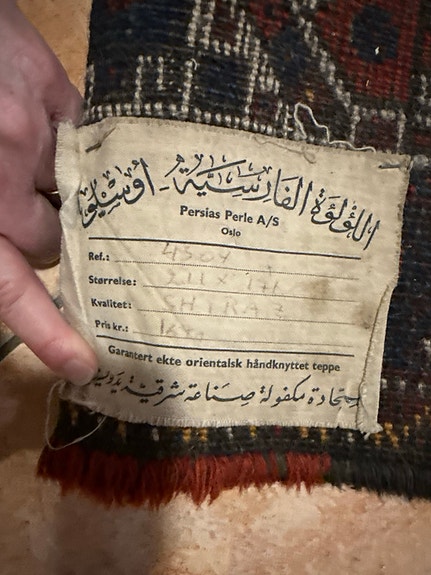 اللؤلؤة الفارسيّة - أوسلو
Persias Perle A/S
Oslo
Ref.: 4504
Størrelse:
Kvalitet: SHIRAZ
Pris kr.:
Garantert ekte orientalsk håndknyttet teppe
سجادة مكفولة صناعة شرقية يدوية